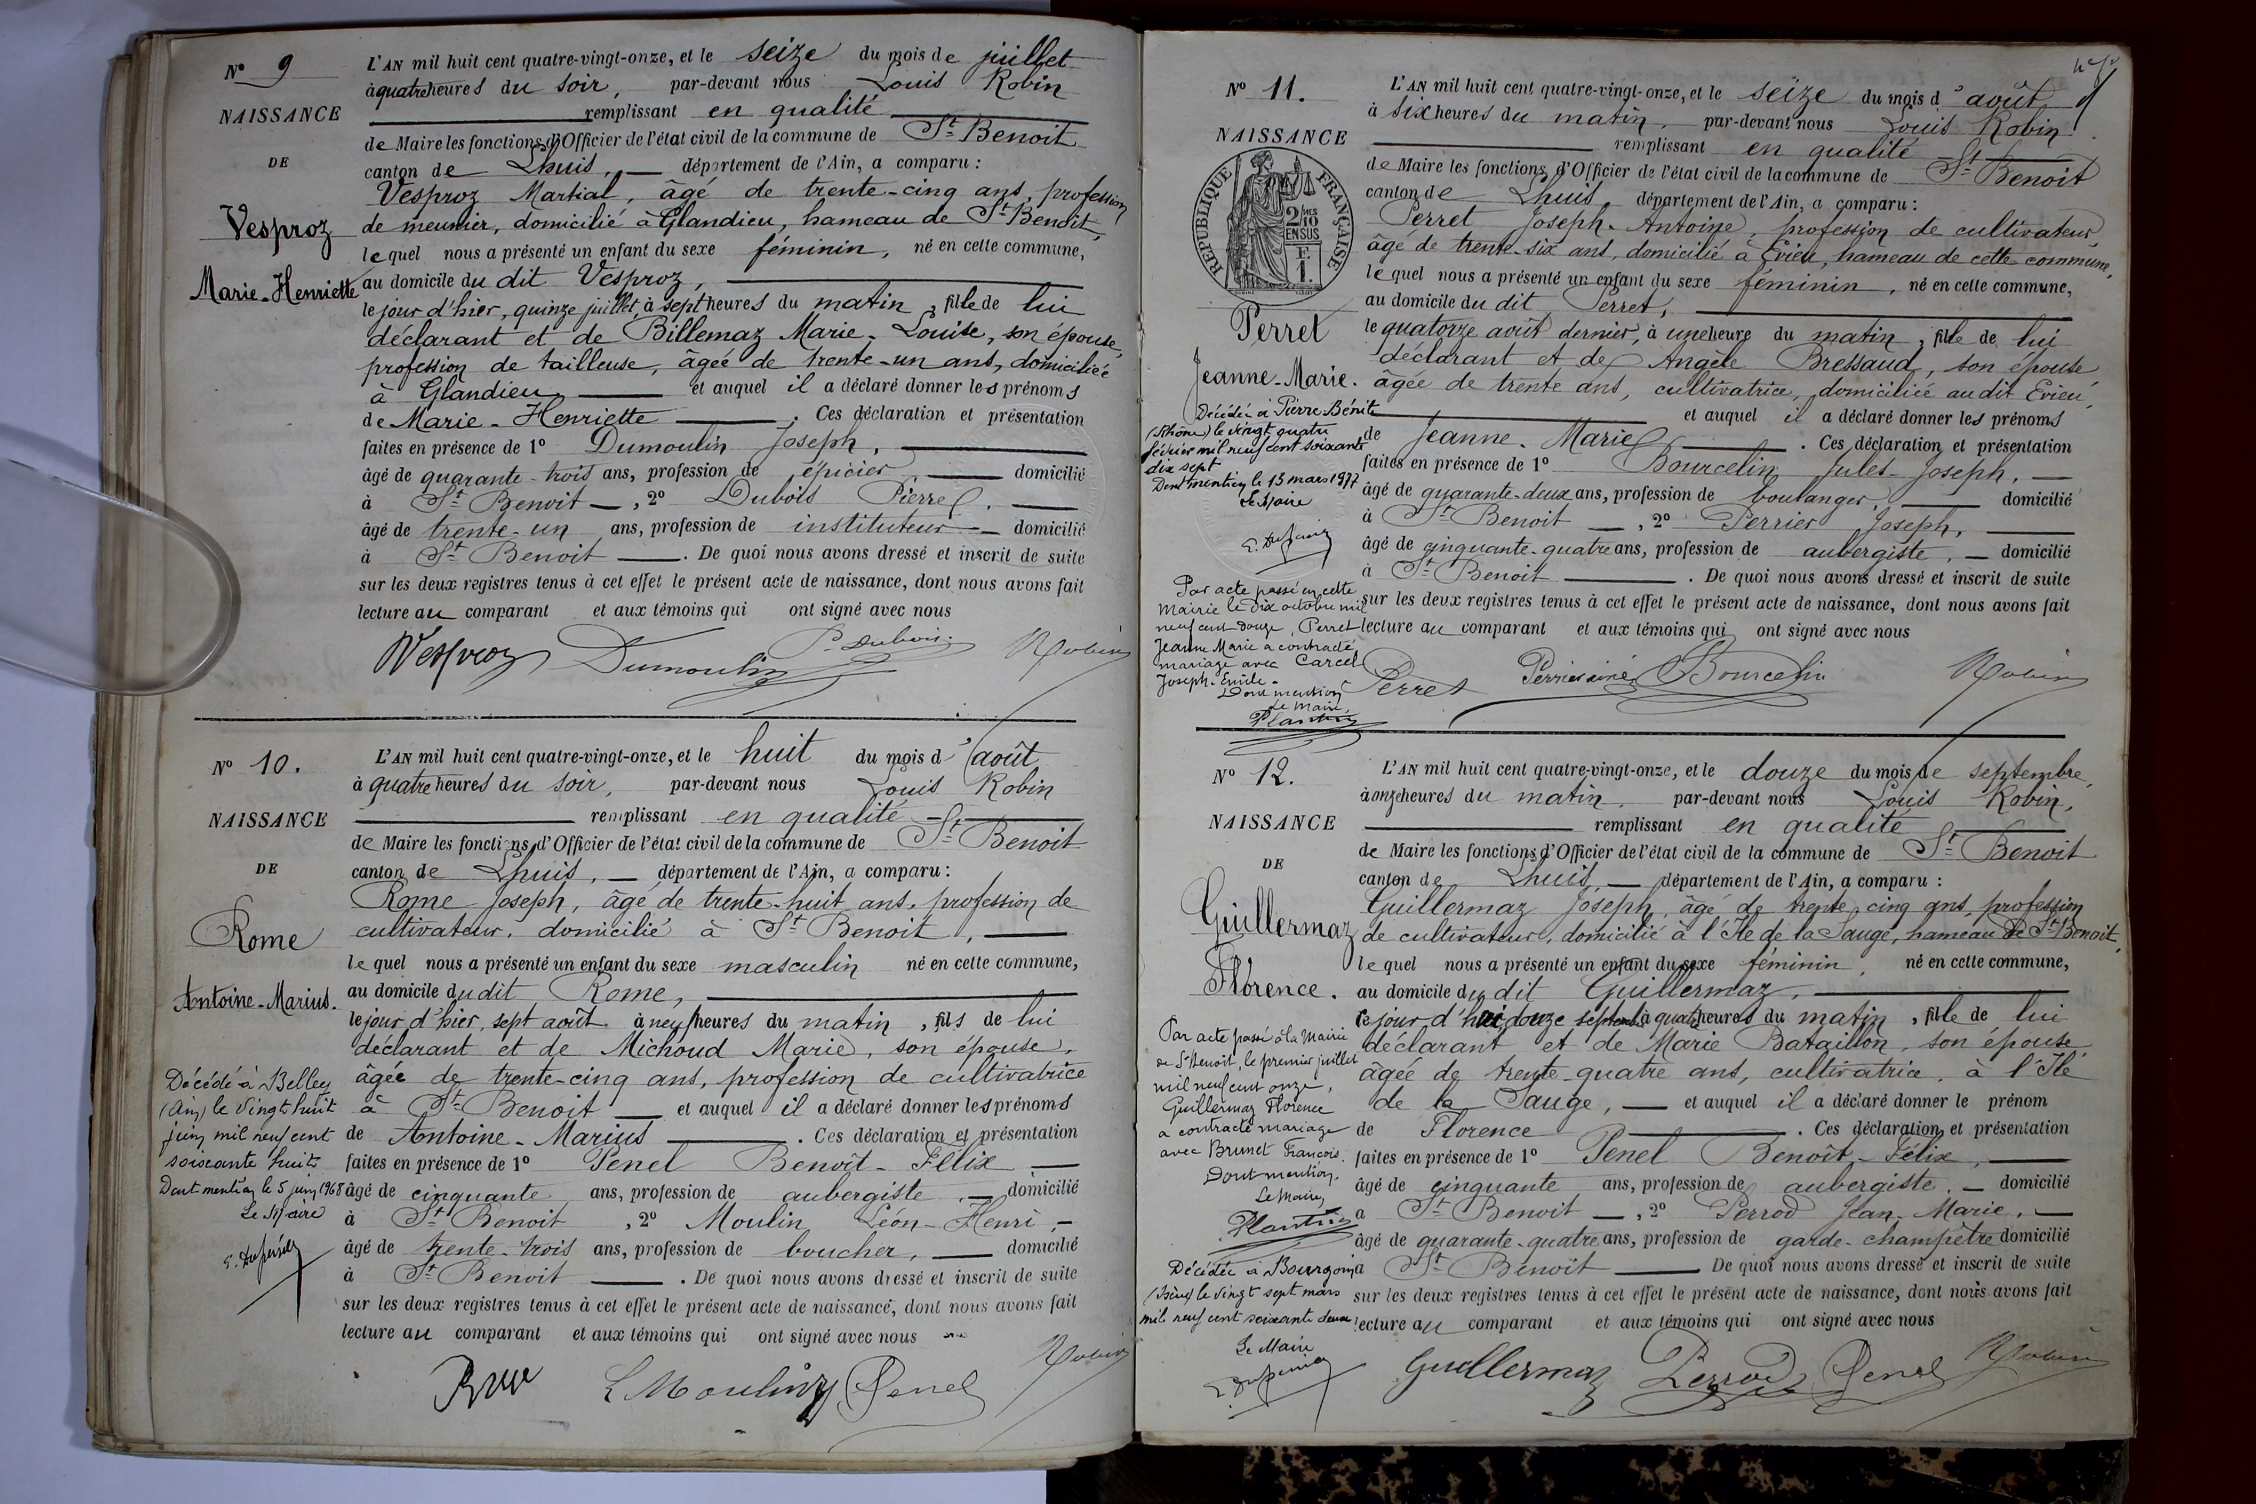 N° 9
NAISSANCE
DE
Vesproz
Marie-Henriette
L'AN mil huit cent quatre-vingt-onze, et le seize du mois de juillet
à quatre heures du soir, par-devant nous Louis Robin
remplissant en qualité
de Maire les fonctions d'Officier de l'état civil de la commune de St Benoit
canton de Lhuis, département de l'Ain, a comparu :
Vesproz Martial, âgé de trente-cinq ans, profession
de meunier, domicilié à Glandieu, hameau de St Benoit,
lequel nous a présenté un enfant du sexe féminin, né en cette commune,
au domicile du dit Vesproz,
le jour d'hier, quinze juillet, à sept heures du matin, fille de lui
déclarant et de Billemaz Marie-Louise, son épouse,
profession de tailleuse, âgée de trente-un ans, domiciliée
à Glandieu et auquel il a déclaré donner les prénoms
de Marie-Henriette . Ces déclaration et présentation
faites en présence de 1° Dumoulin Joseph,
âgé de quarante-trois ans, profession de épicier, domicilié
à St Benoit, 2° Dubois Pierre,
âgé de trente-un ans, profession de instituteur domicilié
à St Benoit . De quoi nous avons dressé et inscrit de suite
sur les deux registres tenus à cet effet le présent acte de naissance, dont nous avons fait
lecture au comparant et aux témoins qui ont signé avec nous
Vesproz Dumoulin P. Dubois Robin
N° 10.
NAISSANCE
DE
Rome
Antoine-Marius.
Décédé à Belley
(Ain) le vingt huit
juin mil neuf cent
soixante huit
Dont mention le 5 juin 1968
Le Maire
L'AN mil huit cent quatre-vingt-onze, et le huit du mois d'août
à quatre heures du soir, par-devant nous Louis Robin
remplissant en qualité
de Maire les fonctions d'Officier de l'état civil de la commune de St Benoit
canton de Lhuis, département de l'Ain, a comparu :
Rome Joseph, âgé de trente-huit ans, profession de
cultivateur, domicilié à St Benoit,
lequel nous a présenté un enfant du sexe masculin né en cette commune,
au domicile du dit Rome,
le jour d'hier, sept août à neuf heures du matin, fils de lui
déclarant et de Michoud Marie, son épouse,
âgée de trente-cinq ans, profession de cultivatrice
à St Benoit et auquel il a déclaré donner les prénoms
de Antoine-Marius . Ces déclaration et présentation
faites en présence de 1° Penel Benoît-Félix
âgé de cinquante ans, profession de aubergiste, domicilié
à St Benoit, 2° Moulin Léon-Henri,
âgé de trente-trois ans, profession de boucher, domicilié
à St Benoit . De quoi nous avons dressé et inscrit de suite
sur les deux registres tenus à cet effet le présent acte de naissance, dont nous avons fait
lecture au comparant et aux témoins qui ont signé avec nous
Rome L Moulin Penel Robin
N° 11.
NAISSANCE
RÉPUBLIQUE FRANÇAISE
2/10 MES
EN SUS
F.
1.
Perret
Jeanne-Marie.
Décédée à Pierre Bénite
(Rhône) le vingt quatre
février mil neuf cent soixante
dix sept
Dont mention le 15 mars 1977
Le Maire
Par acte passé en cette
Mairie le dix octobre mil
neuf cent douze, Perret
Jeanne Marie a contracté
mariage avec Carcel
Joseph-Emile.
Dont mention
Le Maire,
Plantin
L'AN mil huit cent quatre-vingt-onze, et le seize du mois d'août
à six heures du matin, par-devant nous Louis Robin
remplissant en qualité
de Maire les fonctions d'Officier de l'état civil de la commune de St Benoit
canton de Lhuis département de l'Ain, a comparu :
Perret Joseph-Antoine, profession de cultivateur,
âgé de trente-six ans, domicilié à Evieu, hameau de cette commune,
lequel nous a présenté un enfant du sexe féminin, né en cette commune,
au domicile du dit Perret,
le quatorze août dernier, à une heure du matin, fille de lui
déclarant et de Angèle Bressaud, son épouse
âgée de trente ans, cultivatrice, domiciliée au dit Evieu,
et auquel il a déclaré donner les prénoms
de Jeanne-Marie . Ces déclaration et présentation
faites en présence de 1° Bourcelin Jules-Joseph,
âgé de quarante-deux ans, profession de boulanger, domicilié
à St Benoit, 2° Perrier Joseph,
âgé de cinquante-quatre ans, profession de aubergiste, domicilié
à St Benoit . De quoi nous avons dressé et inscrit de suite
sur les deux registres tenus à cet effet le présent acte de naissance, dont nous avons fait
lecture au comparant et aux témoins qui ont signé avec nous
Perret Perrier aîné Bourcelin Robin
N° 12.
NAISSANCE
DE
Guillermaz
Florence.
Par acte passé à la Mairie
de St Benoit, le premier juillet
mil neuf cent onze,
Guillermaz Florence
a contracté mariage
avec Brunet François.
Dont mention,
Le Maire,
Plantin
Décédée à Bourgoin
(Isère) le vingt sept mars
mil neuf cent soixante deux
Le Maire
L'AN mil huit cent quatre-vingt-onze, et le douze du mois de septembre,
à onze heures du matin, par-devant nous Louis Robin,
remplissant en qualité
de Maire les fonctions d'Officier de l'état civil de la commune de St Benoit
canton de Lhuis, département de l'Ain, a comparu :
Guillermaz Joseph, âgé de trente-cinq ans, profession
de cultivateur, domicilié à l'Ile de la Sauge, hameau de St Benoit,
lequel nous a présenté un enfant du sexe féminin, né en cette commune,
au domicile du dit Guillermaz,
le jour d'hui douze septembre à quatre heures du matin, fille de lui
déclarant et de Marie Bataillon, son épouse
âgée de trente-quatre ans, cultivatrice, à l'Ile
de la Sauge, et auquel il a déclaré donner le prénom
de Florence . Ces déclaration et présentation
faites en présence de 1° Penel Benoît-Félix,
âgé de cinquante ans, profession de aubergiste, domicilié
à St Benoit, 2° Perrod Jean-Marie,
âgé de quarante-quatre ans, profession de garde-champêtre domicilié
à St Benoit De quoi nous avons dressé et inscrit de suite
sur les deux registres tenus à cet effet le présent acte de naissance, dont nous avons fait
lecture au comparant et aux témoins qui ont signé avec nous
Guillermaz Perrod Penel Robin